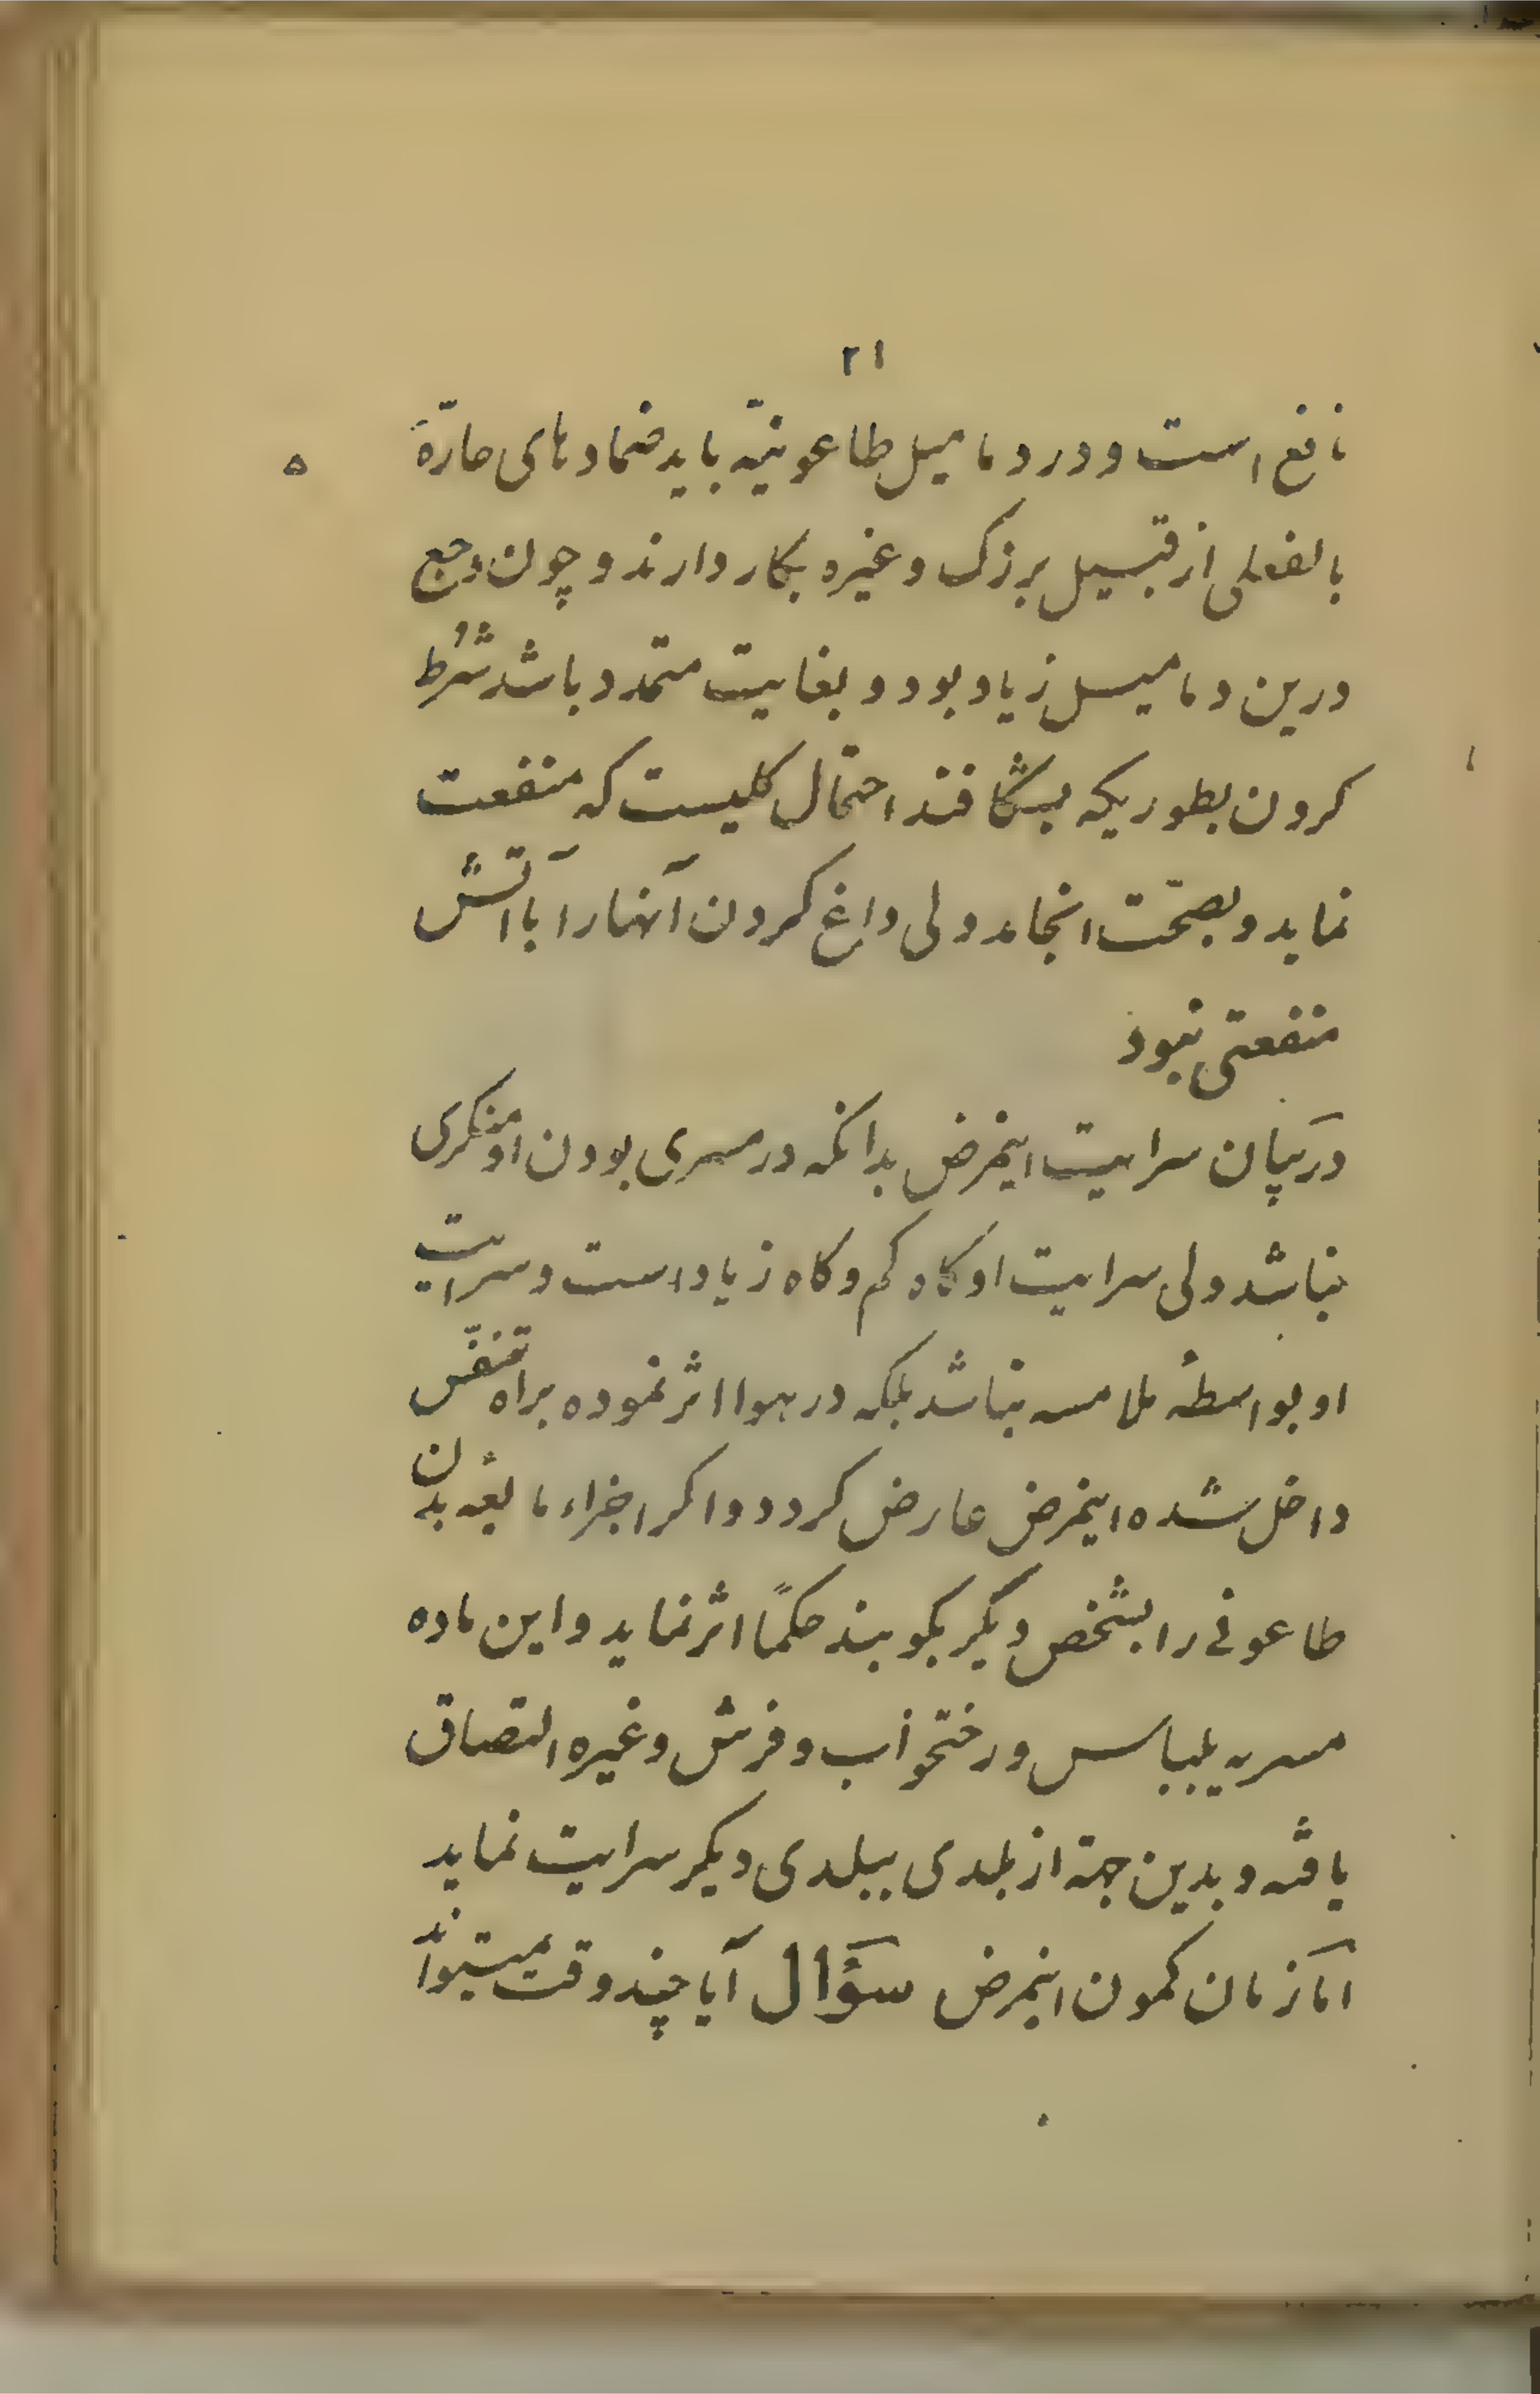 ۲۱
نافع است و در دمامیل طاعونیّه باید ضمادهای حارّهٔ
بالفعلی از قبیل برزک و غیره بکار دارند و چون وجع
درین دمامیل زیاد بود و بغایت متمدد باشد شرط
کردن بطوریکه بشکافند احتمال کلیست که منفعت
نماید و بصحّت انجامد ولی داغ کردن آنهارا با آتش
منفعتی نبود
در بیان سرایت اینمرض بدانکه در مسری بودن او منکری
نباشد ولی سرایت او کاه کم و کاه زیاد است و سرایت
او بواسطهٔ ملامسه نباشد بلکه در هوا اثر نموده براه تنفّس
داخل شده اینمرض عارض کردد و اکر اجزاء مایعه بدن
طاعونی را بشخص دیکر بکوبند حکماً اثر نماید و این ماده
مسریه بلباس و رختخواب و فرش و غیره التصاق
یافته و بدین جهة از بلدی ببلدی دیکر سرایت نماید
اما زمان کمون اینمرض سؤال آیا چند وقت میتواند